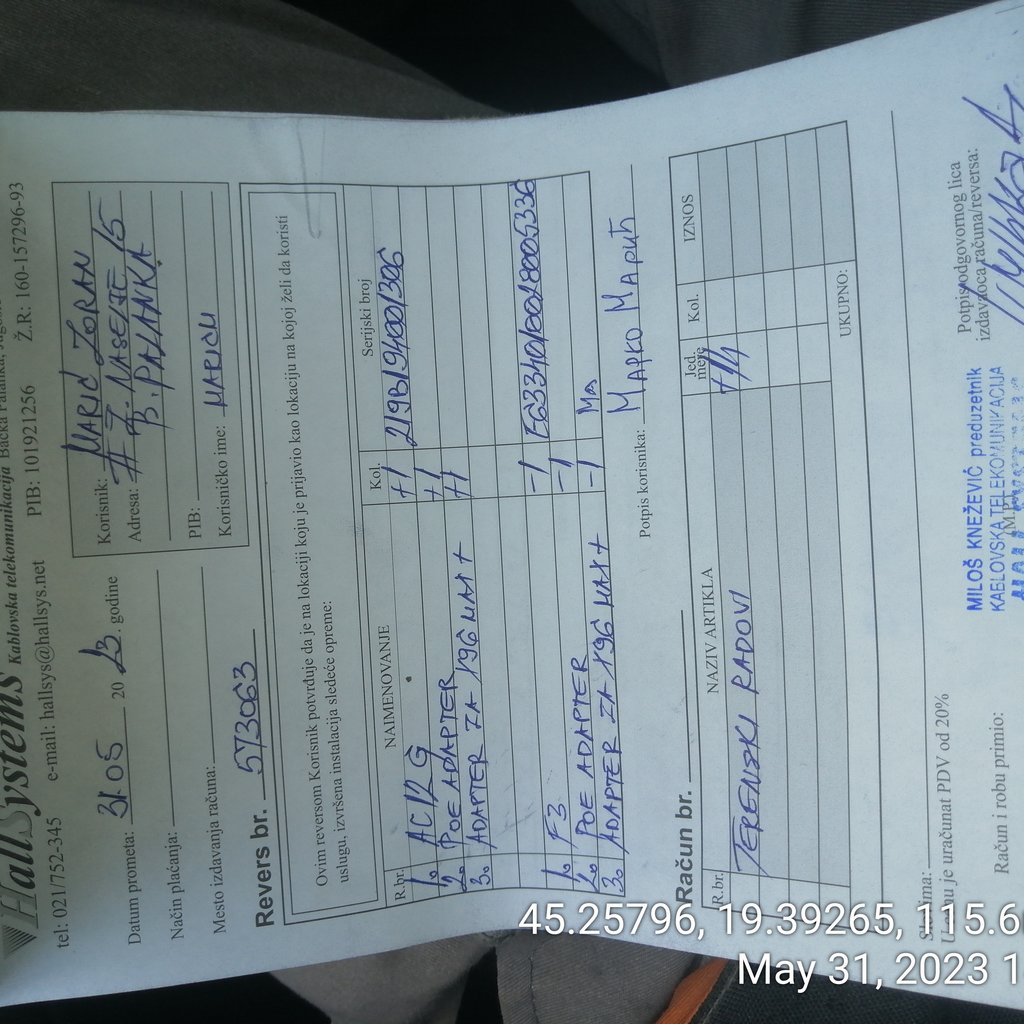 HallSystems Kablovska telekomunikacija Bačka Palanka,
tel: 021/752-345 e-mail: hallsys@hallsys.net PIB: 101921256 Ž.R: 160-157296-93
Datum prometa: 31.05 2023. godine
Način plaćanja:
Mesto izdavanja računa:
Korisnik: MARIĆ ZORAN
Adresa: # 7. NASELJE 15
B. PALANKA
PIB:
Korisničko ime: MARICM
Revers br. 573063
Ovim reversom Korisnik potvrđuje da je na lokaciji koju je prijavio kao lokaciju na kojoj želi da koristi
uslugu, izvršena instalacija sledeće opreme:
R.br. NAIMENOVANJE Kol. Serijski broj
1. AC12G +1 219B194001306
2. POE ADAPTER +1
3. ADAPTER ZA X96 MAX+ +1
1. F3 -1 E63340180018005336
2. POE ADAPTER -1
3. ADAPTER ZA X96 MAX+ -1
Potpis korisnika: Марко Марић
Račun br.
R.br. NAZIV ARTIKLA Jed. mere Kol. IZNOS
TERENSKI RADOVI
UKUPNO:
Slovima:
U cenu je uračunat PDV od 20%
Račun i robu primio:
MILOŠ KNEŽEVIĆ preduzetnik
KABLOVSKA TELEKOMUNIKACIJA
Potpis odgovornog lica
izdavaoca računa/reversa:
45.25796, 19.39265, 115.6
May 31, 2023 1